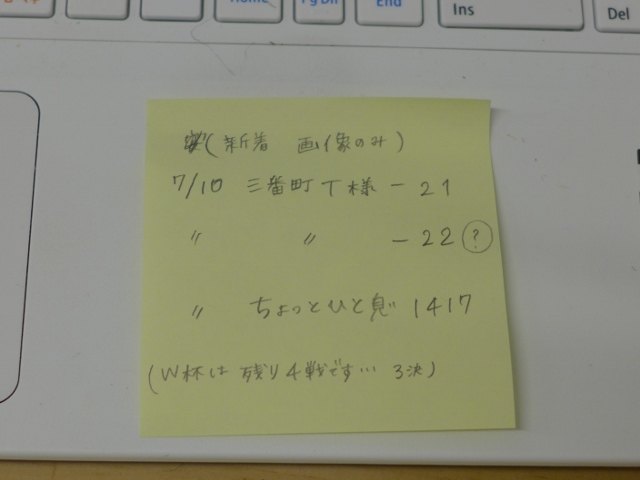 Home
PgDn
End
Ins
Del
(新着 画像のみ)
7/10 三番町T様 - 21
〃 〃 - 22 ?
〃 ちょっとひと息 1417
(W杯は 残り4戦です… 3決)